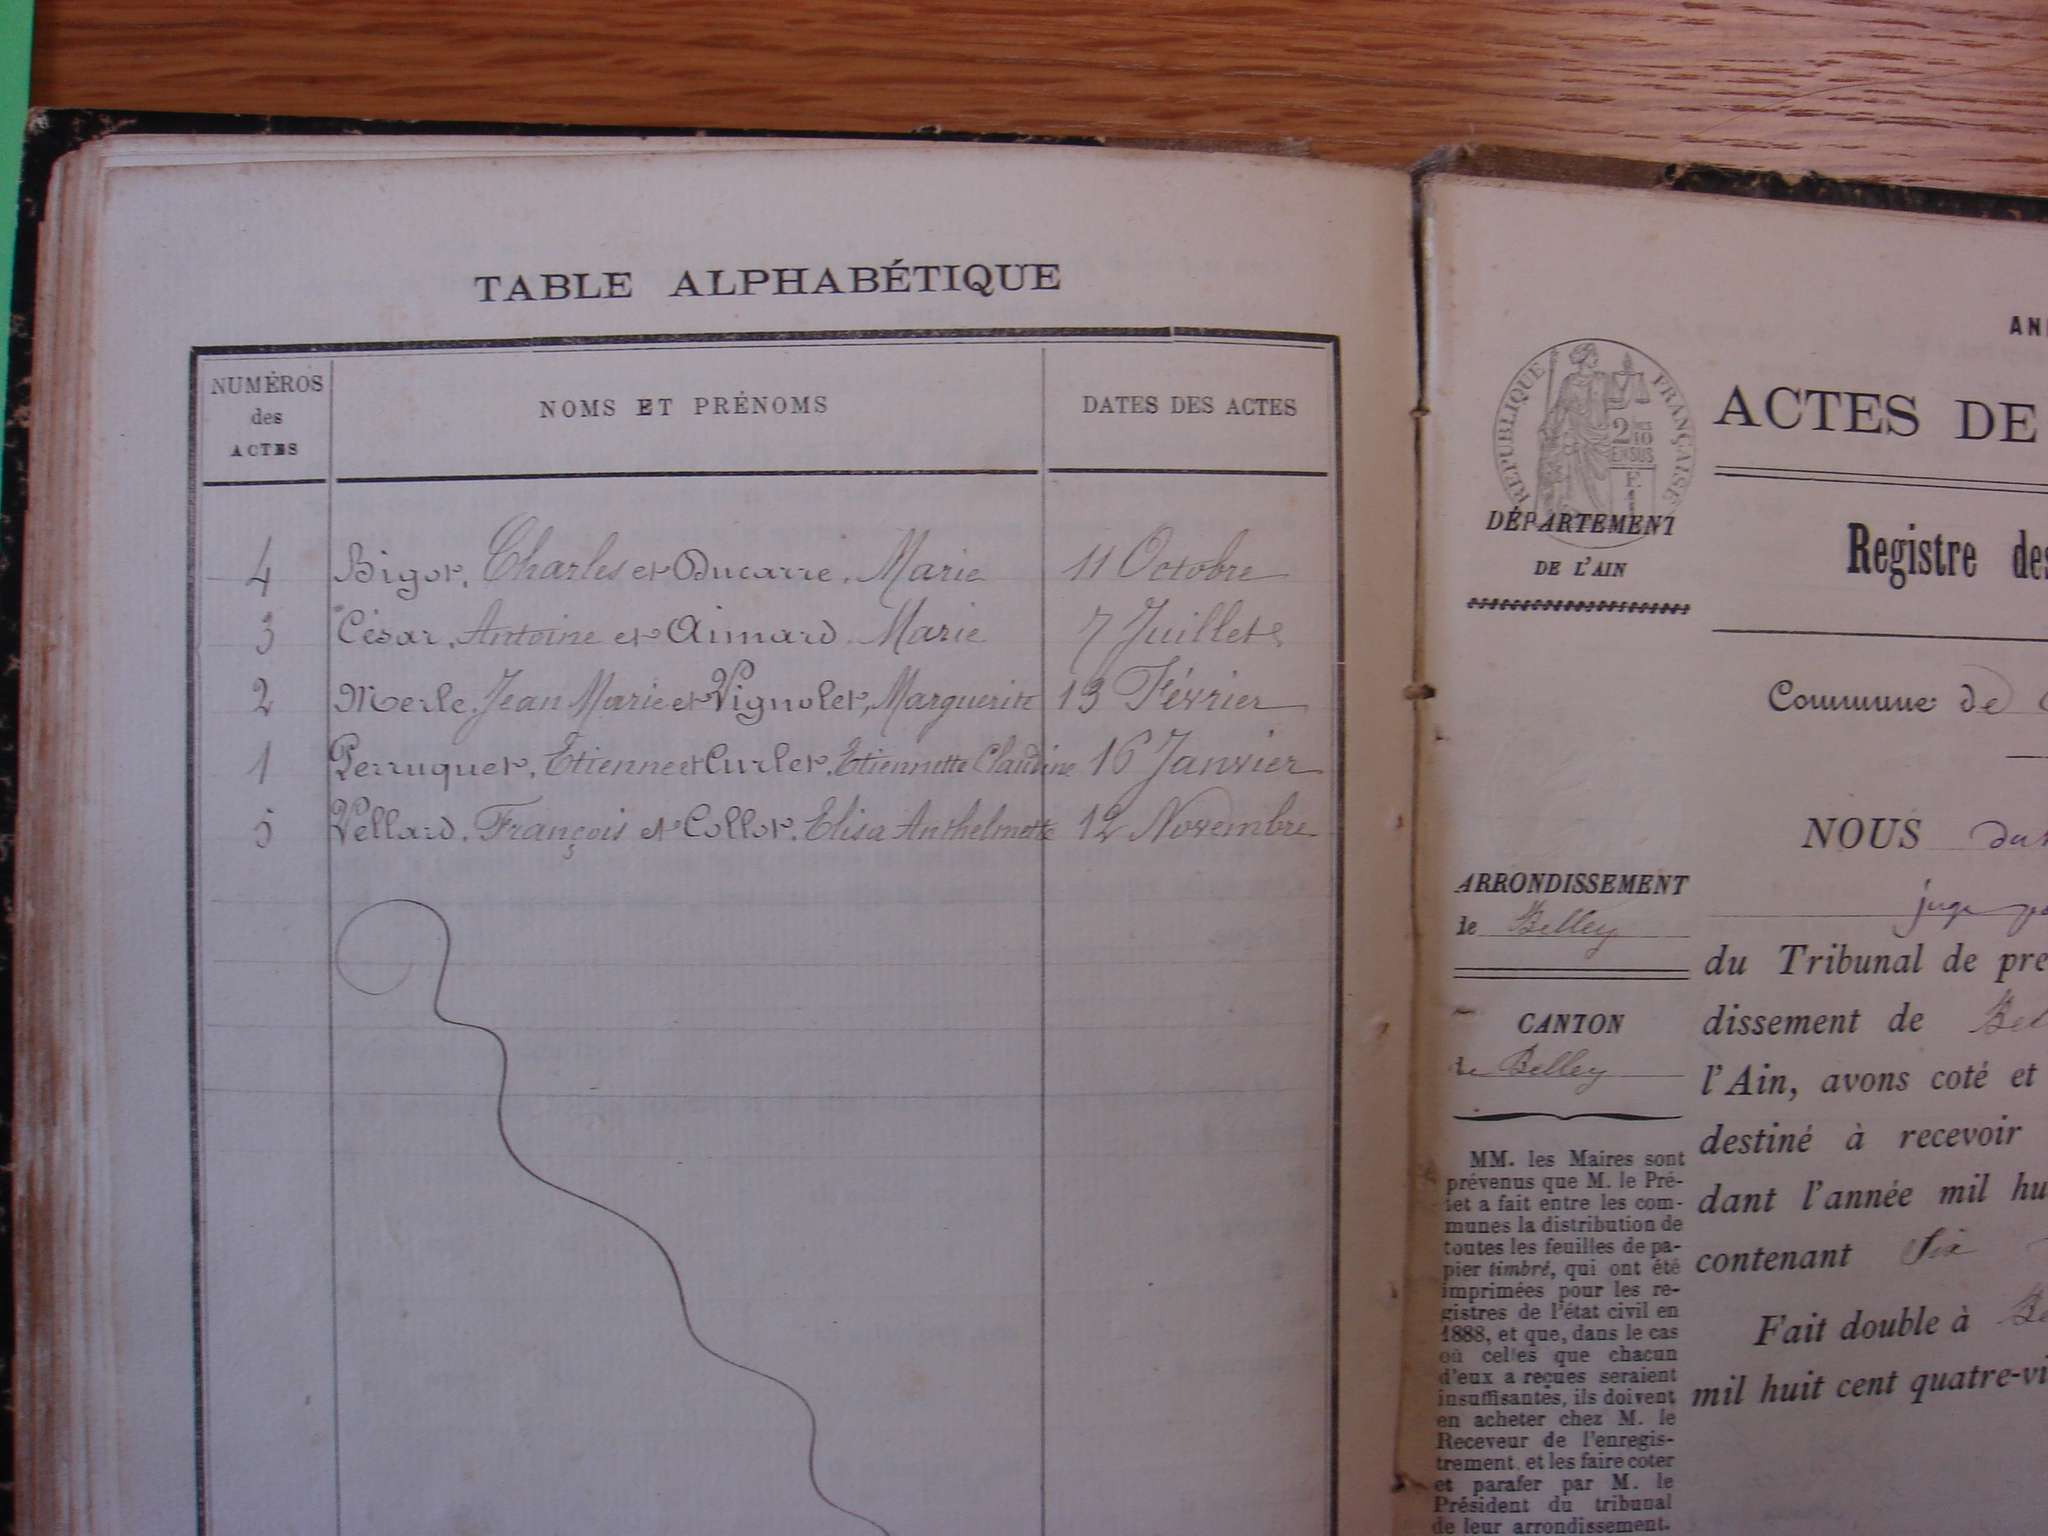 TABLE ALPHABÉTIQUE
NUMÉROS des ACTES
NOMS ET PRÉNOMS
DATES DES ACTES
4 Bigot, Charles et Ducarre, Marie 11 Octobre
3 César, Antoine et Aimard, Marie 7 Juillet
2 Merle, Jean Marie et Vignolet, Marguerite 13 Février
1 Perruquet, Etienne et Curlet, Etiennette Claudine 16 Janvier
5 Vellard, François et Collot, Elisa Anthelmette 12 Novembre
AN
RÉPUBLIQUE FRANÇAISE
2
ACTES DE
DÉPARTEMENT
DE L'AIN
Registre des
Commune de
NOUS
ARRONDISSEMENT
de Belley
juge
du Tribunal de pre
CANTON
de Belley
dissement de Bel
l'Ain, avons coté et
destiné à recevoir
dant l'année mil hu
contenant Six
Fait double à Be
mil huit cent quatre-vi
MM. les Maires sont
prévenus que M. le Pré-
fet a fait entre les com-
munes la distribution de
toutes les feuilles de pa-
pier timbré, qui ont été
imprimées pour les re-
gistres de l'état civil en
1888, et que, dans le cas
où celles que chacun
d'eux a reçues seraient
insuffisantes, ils doivent
en acheter chez M. le
Receveur de l'enregis-
trement, et les faire coter
et parafer par M. le
Président du tribunal
de leur arrondissement.